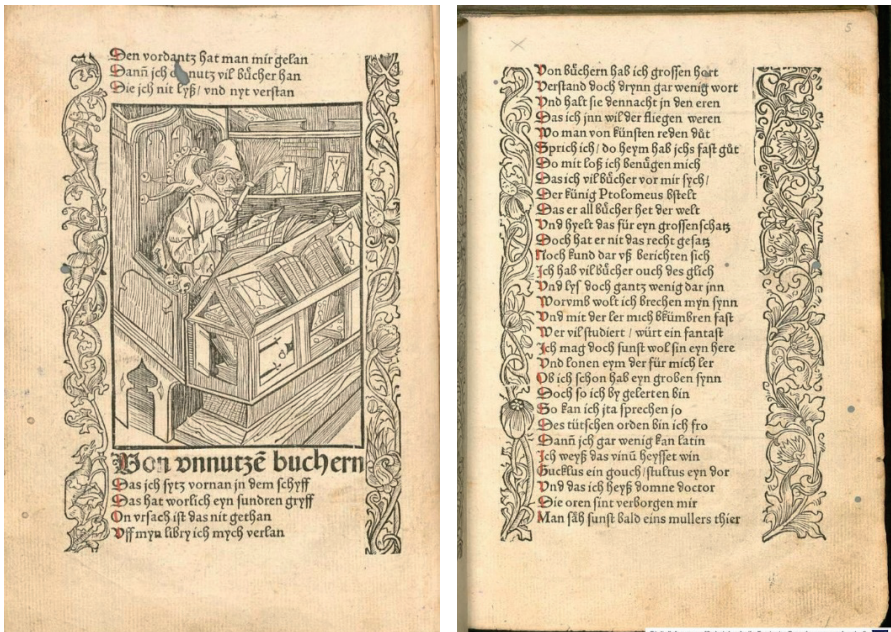 Den vordantz hat man mir gelan
Dann ich on nutz vil bůcher han
Die ich nit lyß / vnd nyt verstan
Von vnnutzẽ buchern
Das ich sytz vornan in dem schyff
Das hat worlich eyn sundren gryff
On vrsach ist das nit gethan
Vff myn libry ich mych verlan
5
Von bůchern hab ich grossen hort
Verstand doch drynn gar wenig wort
Vnd halt sie dennacht jn den eren
Das ich jnn wil der fliegen weren
Wo man von künsten reden důt
Sprich ich / do heym hab jchs fast gůt
Do mit loß ich benůgen mich
Das ich vil bůcher vor mir sych /
Der künig Ptolomeus bstelt
Das er all bůcher het der welt
Vnd hyelt das für eyn grossen schatz
Doch hat er nit das recht gesatz
Noch kund dar vß berichten sich
Ich hab vil bůcher ouch des glich
Vnd lys doch gantz wenig dar jnn
Worvmb wolt ich brechen myn synn
Vnd mit der ler mich bkümbren fast
Wer vil studiert / würt ein fantast
Ich mag doch sunst wol sin eyn here
Vnd lonen eym der für mich ler
Ob ich schon hab eyn groben synn
Doch so ich by gelerten bin
So kan ich jta sprechen jo
Des tütschen orden bin ich fro
Dann jch gar wenig kan latin
Ich weyß das vinũ heysset win
Gucklus ein gouch / stultus eyn dor
Vnd das ich heyß domne doctor
Die oren sint verborgen mir
Man såh sunst bald eins mullers thier